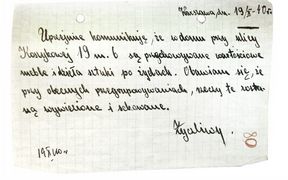 Warszawa, dn. 19/X 40 r.
Uprzejmie komunikuję, iż w domu przy ulicy
Koszykowej 19 m. 6 są przechowywane wartościowe
meble i dzieła sztuki po żydach. Obawiam się, że
przy obecnych przegrupowaniach, rzeczy te zosta-
ną wywiezione i schowane.
Życzliwy.
19 X 40 r
80